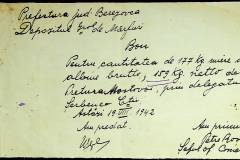 Prefectura jud Berezovca
Depozitul de Marfuri
Bon
Pentru cantitatea de 177 kg miere de
albine brutto, 159 kg netto de
Pretura Mostovoi, prin delegatul
Serbenco
Astăzi 19 VIII 1942
Am predat. Am primit
Petre